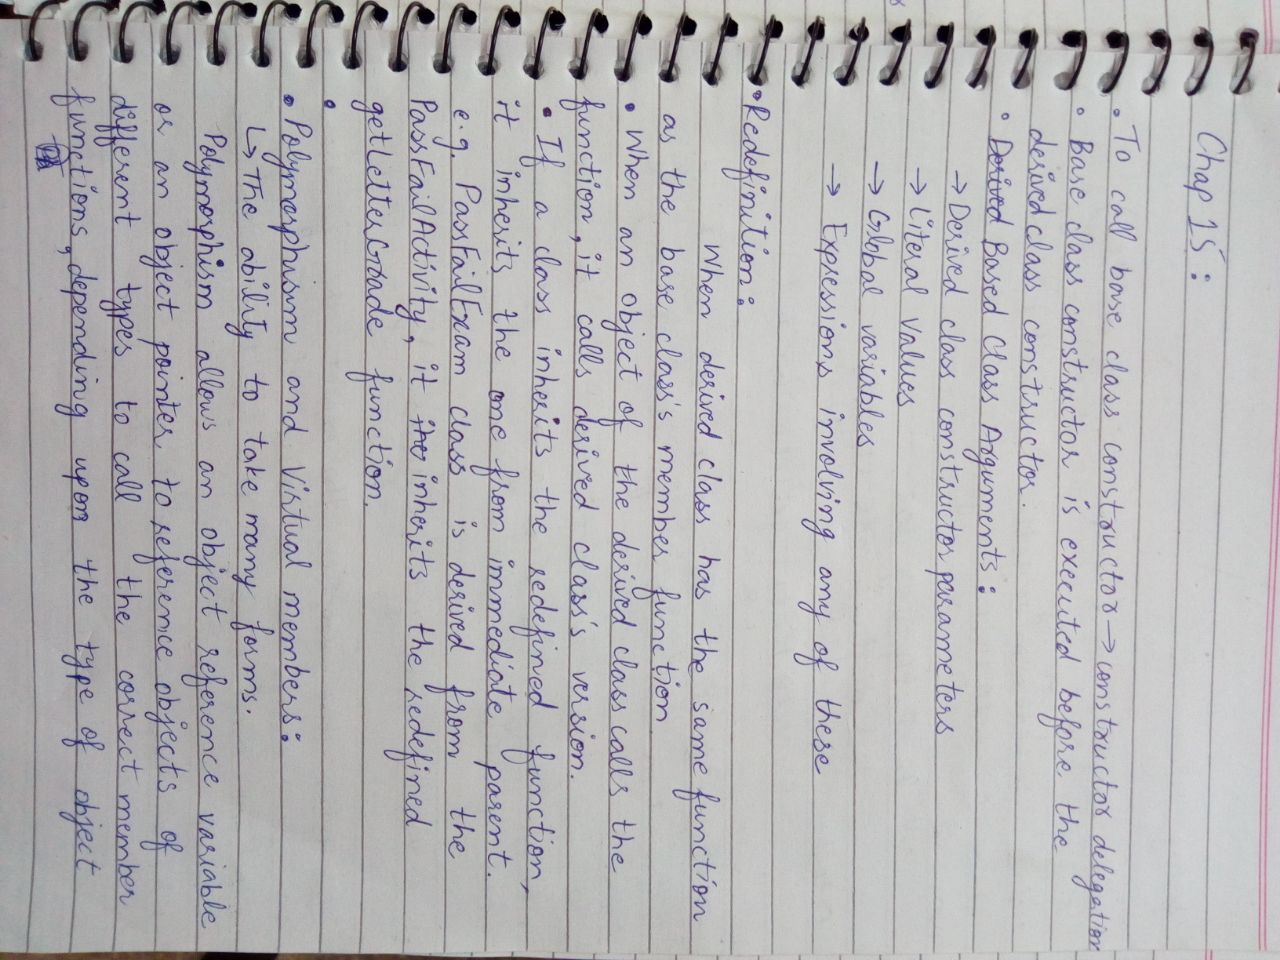 Chap 15:
• To call base class constructor → constructor delegation
• Base class constructor is executed before the
derived class constructor.
• Derived Based Class Arguments:
→ Derived class constructor parameters
→ Literal values
→ Global variables
→ Expressions involving any of these
• Redefinition:
When derived class has the same function
as the base class's member function
• When an object of the derived class calls the
function, it calls derived class's version.
• If a class inherits the redefined function,
it inherits the one from immediate parent.
e.g. PassFailExam class is derived from the
PassFailActivity, it inherits the redefined
getLetterGrade function.
•
• Polymorphism and Virtual members:
↳ The ability to take many forms.
Polymorphism allows an object reference variable
or an object pointer to reference objects of
different types to call the correct member
functions, depending upon the type of object